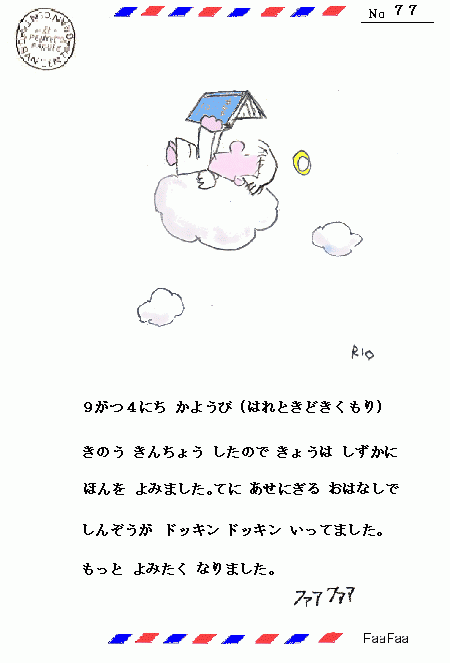 No 77
RIO
9がつ4にち かようび (はれときどきくもり)
きのう きんちょう したので きょうは しずかに
ほんを よみました。てに あせにぎる おはなしで
しんぞうが ドッキン ドッキン いってました。
もっと よみたく なりました。
ファァ ファァ
FaaFaa